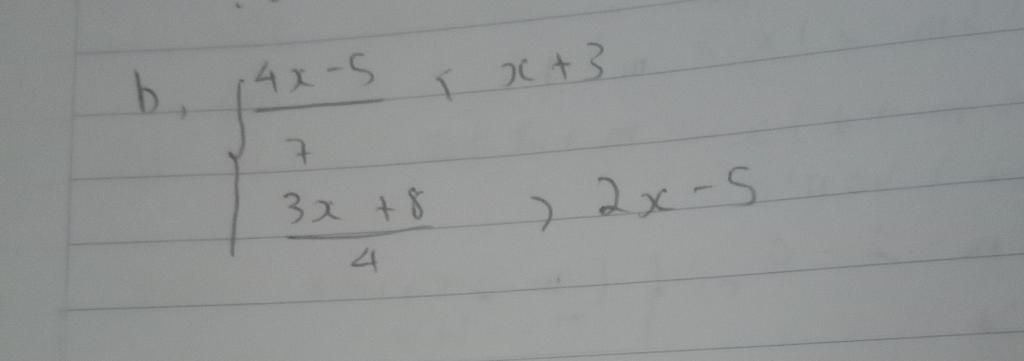 b, { (4x-5)/7 < x+3
(3x+8)/4 > 2x-5